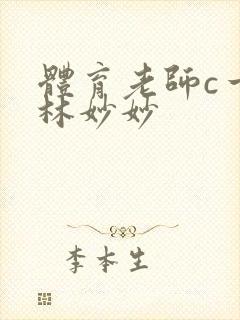 體育老師c一
林妙妙
李本生